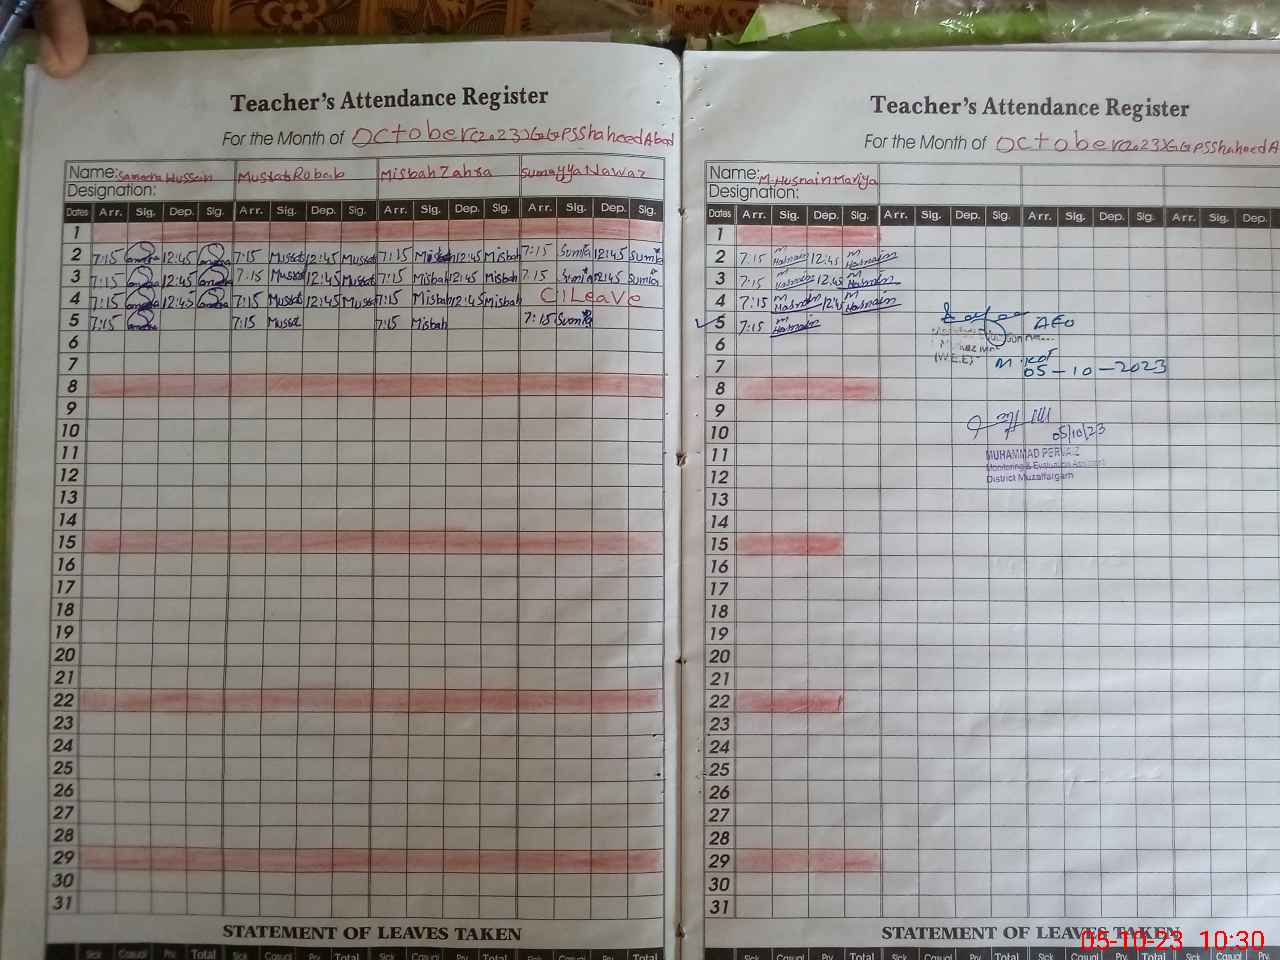 Teacher's Attendance Register
For the Month of October(2023)GGPSShaheedAbad
Name: Sameena Hussain Mussrat Robab Misbah Zahra Sumayya Nawaz
Designation:
Dates Arr. Sig. Dep. Sig. Arr. Sig. Dep. Sig. Arr. Sig. Dep. Sig. Arr. Sig. Dep. Sig.
1
2 7:15 12:45 7:15 Mussrat 12:45 Mussrat 7:15 Misbah 12:45 Misbah 7:15 Sumia 12:45 Sumia
3 7:15 12:45 7:15 Mussrat 12:45 Mussrat 7:15 Misbah 12:45 Misbah 7:15 Sumia 12:45 Sumia
4 7:15 12:45 7:15 Mussrat 12:45 Mussrat 7:15 Misbah 12:45 Misbah C/Leave
5 7:15 7:15 Mussrat 7:15 Misbah 7:15 Sumia
6
7
8
9
10
11
12
13
14
15
16
17
18
19
20
21
22
23
24
25
26
27
28
29
30
31
STATEMENT OF LEAVES TAKEN
Sick Casual Prv. Total Sick Casual Prv. Total Sick Casual Prv. Total Sick Casual Prv. Total
Teacher's Attendance Register
For the Month of October(2023)GGPSShaheedA
Name: M.Husnain Mariya
Designation:
Dates Arr. Sig. Dep. Sig. Arr. Sig. Dep. Sig. Arr. Sig. Dep. Sig. Arr. Sig. Dep.
1
2 7:15 M Hasnain 12:45 M Hasnain
3 7:15 M Hasnain 12:45 M Hasnain
4 7:15 M Hasnain 12:45 M Hasnain
5 7:15 M Hasnain AEO
6 (W.E.E)
7 05-10-2023
8
9
10 05/10/23
11 MUHAMMAD PERVAIZ
Monitoring & Evaluation Assistant
12 District Muzaffargarh
13
14
15
16
17
18
19
20
21
22
23
24
25
26
27
28
29
30
31
STATEMENT OF LEAVES TAKEN
Sick Casual Prv. Total Sick Casual Prv. Total Sick Casual Prv. Total Sick Casual Prv.
05-10-23 10:30